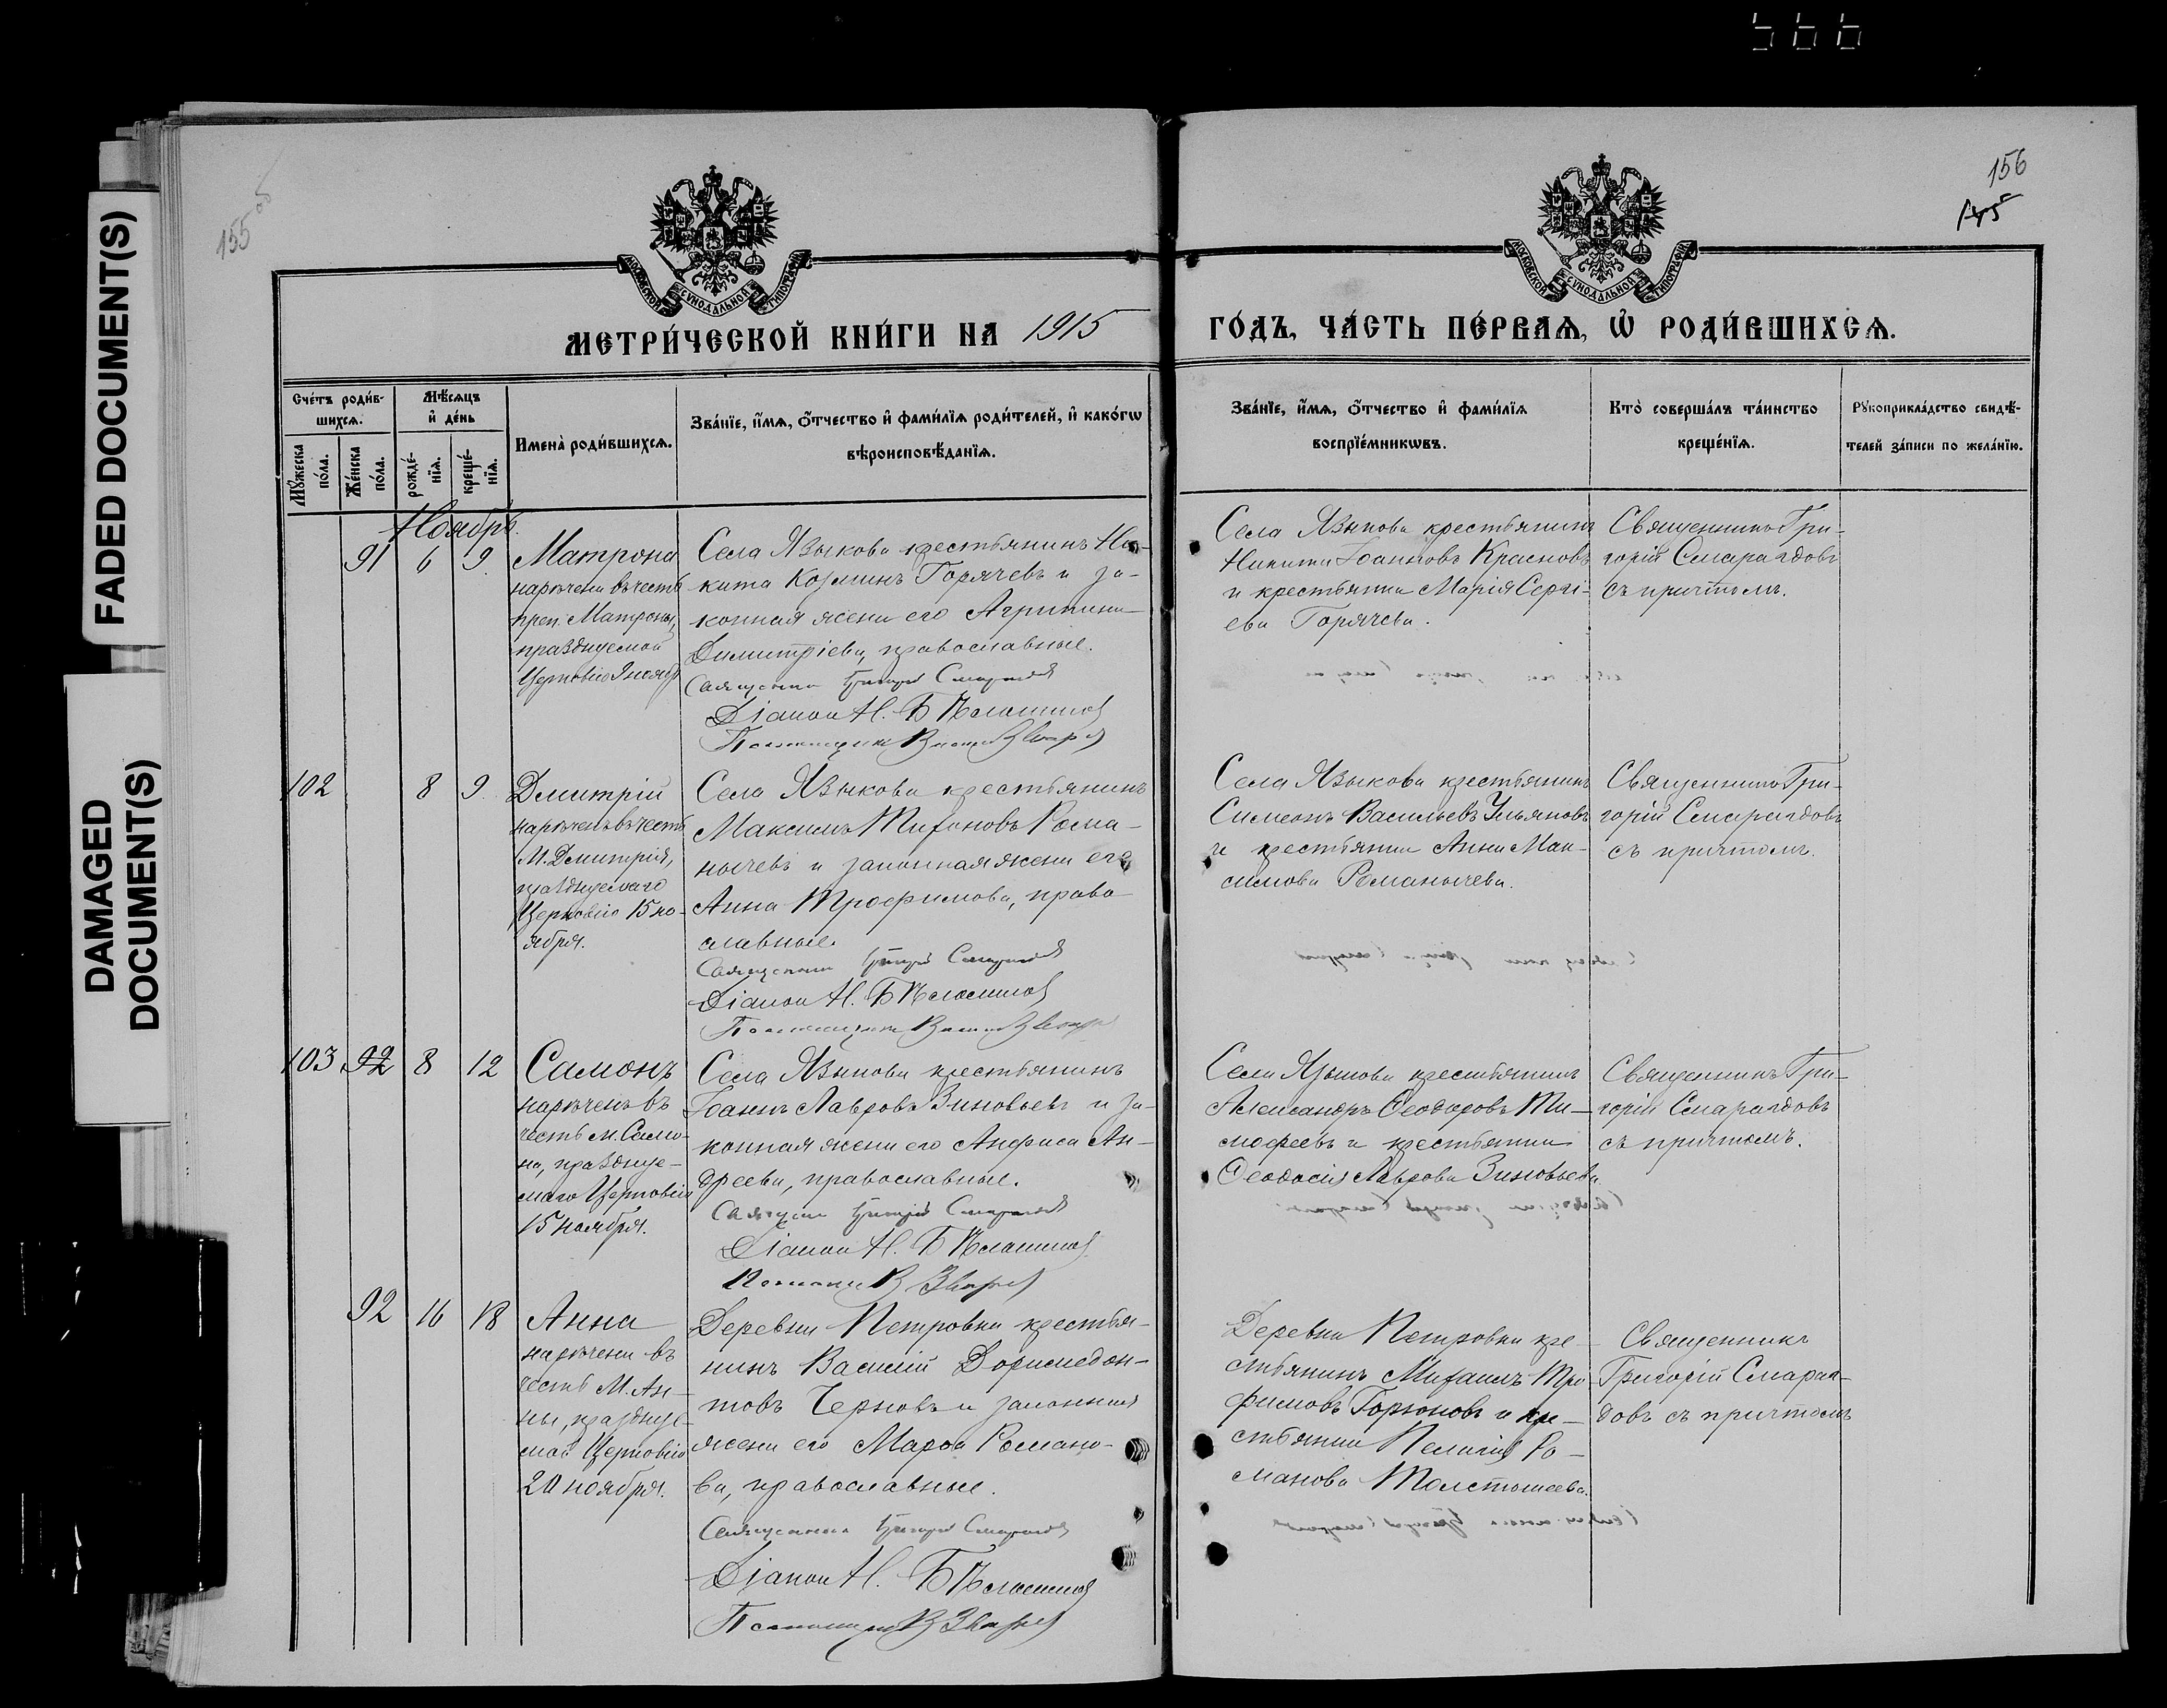 566
FADED DOCUMENT(S)
DAMAGED
DOCUMENT(S)
155
156
145
МОСКОВСКОЙ СѴНОДАЛЬНОЙ ТИПОГРАФІИ
МОСКОВСКОЙ СѴНОДАЛЬНОЙ ТИПОГРАФІИ
МЕТРИ́ЧЕСКОЙ КНИ́ГИ НА 1915
ГО́ДЪ, ЧА́СТЬ ПЕ́РВАѦ, Ѡ҆ РОДИ́ВШИХСѦ.
Сче́тъ роди́в-
шихсѧ.
Мꙋ́жеска
по́ла.
Же́нска
по́ла.
Мѣ́сѧцъ
и҆ де́нь
рожде́-
нїѧ.
креще́-
нїѧ.
Имена̀ роди́вшихсѧ.
Зва́нїе, и҆́мѧ, ѻ҆́тчество и҆ фами́лїѧ роди́телей, и҆ како́гѡ
вѣроисповѣ́данїѧ.
Зва́нїе, и҆́мѧ, ѻ҆́тчество и҆ фами́лїѧ
воспрїе́мникѡвъ.
Кто̀ соверша́лъ та́инство
креще́нїѧ.
Рꙋкоприкла́дство свидѣ́-
телей за́писи по жела́нїю.
Ноябрь.
91 6 9
Матрона
наречена въ честь
преп. Матроны,
празднуемой
Церковію 9 ноябр
Села Языкова крестьянинъ Ни-
кита Козминъ Горячевъ и за-
конная жена его Агрипина
Димитріева, православные.
Священникъ Григорій Смарагдов
Діакон Н.
Села Языкова крестьянинъ
Никита Іоанновъ Красновъ
и крестьянка Марія Серги-
ева Горячева.
Священникъ Гри-
горій Смарагдовъ
съ причтомъ.
102 8 9
Дмитрій
нареченъ въ честь
М. Дмитрія,
празднуемаго
Церковію 15 но-
ября.
Села Языкова крестьянинъ
Максимъ Тихоновъ Рома-
нычевъ и законная жена его
Анна Трофимова, право-
славные.
Священникъ Григорій Смарагдов
Діакон Н.
Села Языкова крестьянинъ
Симеонъ Васильевъ Ульяновъ
и крестьянка Анна Мак-
симова Романычева.
Священникъ Гри-
горій Смарагдовъ
съ причтомъ.
103 92 8 12
Самонъ
нареченъ въ
честь м. Само-
на, праздные-
маго Церковію
15 ноября.
Села Языкова крестьянинъ
Іоаннъ Лавровъ Зиновьевъ и за-
конная жена его Анфиса Ан-
дреева, православные.
Священникъ Григорій Смарагдов
Діакон Н.
Села Языкова крестьянинъ
Александръ Ѳеодоровъ Ти-
мофеевъ и крестьянка
Ѳеодосія Лаврова Зиновьева.
Священникъ Гри-
горій Смарагдовъ
съ причтомъ.
92 16 18
Анна
наречена въ
честь М. Ан-
ны, праздные-
мой Церковію
20 ноября.
Деревни Петровки крестья-
нинъ Василій Доримедон-
товъ Черновъ и законная
жена его Марѳа Романо-
ва, православные.
Священникъ Григорій Смарагдов
Діакон Н.
Деревни Петровки кре-
стьянинъ Михаилъ Тро-
фимовъ Горюновъ и кре-
стьянка Пелагія Ро-
манова Толстошеева.
Священникъ
Григорій Смараг-
довъ съ причтомъ